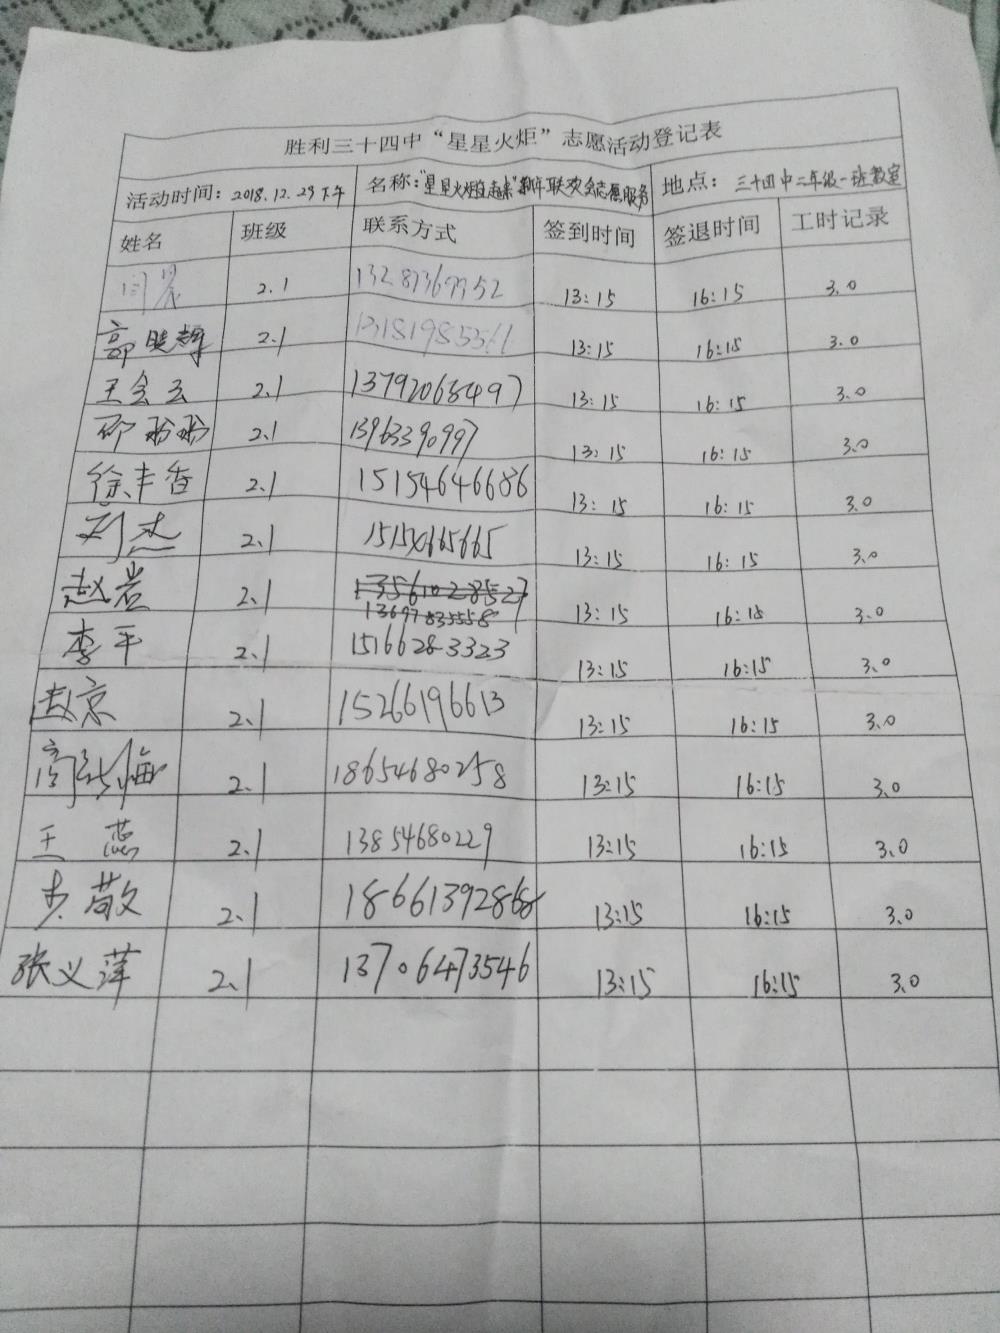 胜利三十四中“星星火炬”志愿活动登记表
活动时间：2018.12.29下午 名称：“星星火炬在起来”新年联欢会志愿服务 地点：三十四中二年级一班教室
姓名 班级 联系方式 签到时间 签退时间 工时记录
闫晨 2.1 13287369952 13:15 16:15 3.0
郭晓辉 2.1 13181985561 13:15 16:15 3.0
王会云 2.1 13792068497 13:15 16:15 3.0
邵盼盼 2.1 13963390997 13:15 16:15 3.0
徐丰香 2.1 15154646686 13:15 16:15 3.0
刘杰 2.1 13:15 16:15 3.0
赵岩 2.1 13:15 16:15 3.0
李平 2.1 15166283323 13:15 16:15 3.0
赵京 2.1 15266196613 13:15 16:15 3.0
2.1 18654680258 13:15 16:15 3.0
王蕊 2.1 13854680229 13:15 16:15 3.0
步敬 2.1 18661392868 13:15 16:15 3.0
张义萍 2.1 13706473546 13:15 16:15 3.0